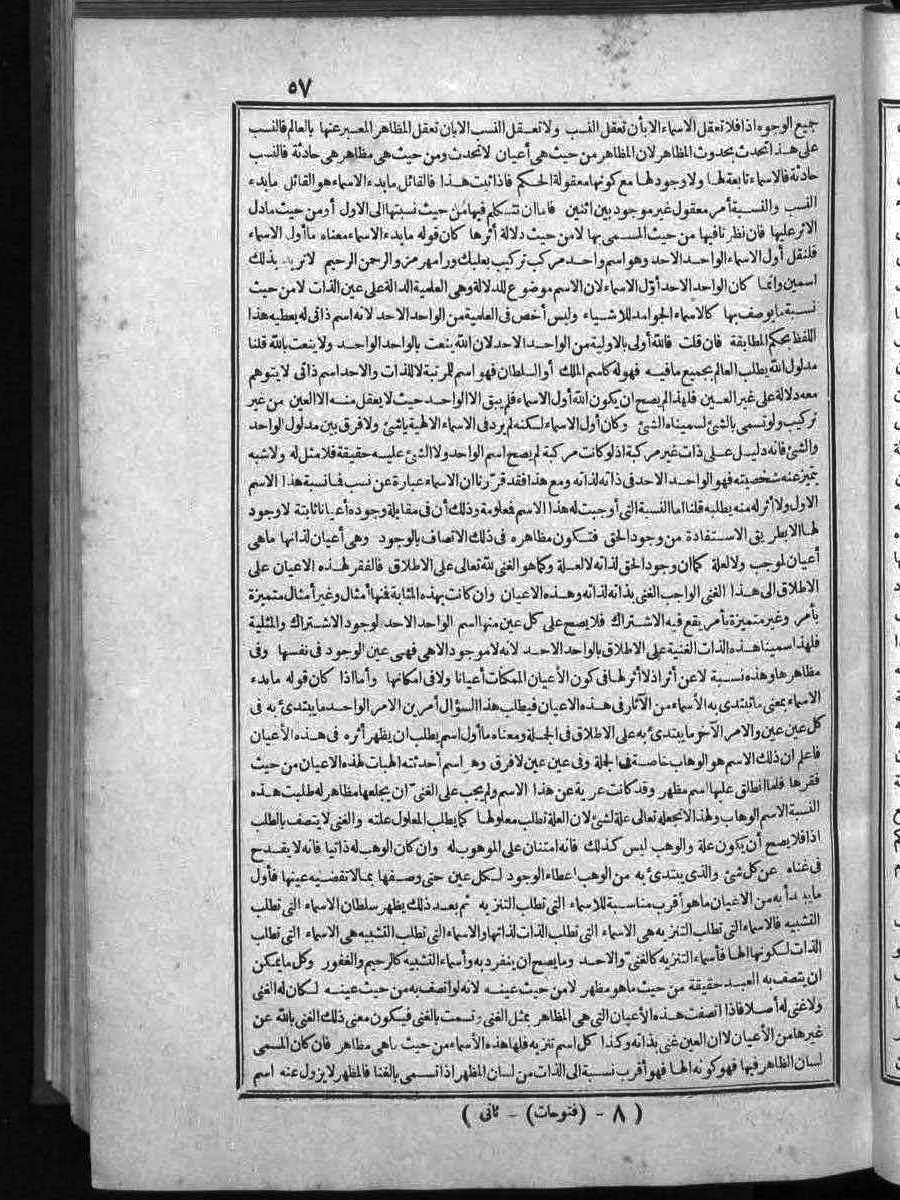 ٥٧
جميع الوجوه اذا فلا تعقل الاسماء الا بأن تعقل النسب ولا تعقل النسب الا بان تعقل المظاهر المعبر عنها بالعالم فالنسب
على هذا تحدث بحدوث المظاهر لان المظاهر من حيث هى أعيان لا تحدث ومن حيث هى مظاهر هى حادثة فالنسب
حادثة فالاسماء تابعة لها ولا وجود لها مع كونها معقولة الحكم فاذا ثبت هذا فالقائل ما بدء الاسماء هو القائل ما بدء
النسب والنسبة أمر معقول غير موجود بين اثنين فاما ان نتكلم فيها من حيث نسبتها الى الاول أو من حيث ما دل
الاثر عليها فان نظرنا فيها من حيث المسمى بها لا من حيث دلالة أثرها كان قوله ما بدء الاسماء معناه ما أول الاسماء
فلنقل أول الاسماء الواحد الاحد وهو اسم واحد مركب تركيب بعلبك ورامهرمز والرحمن الرحيم لا نريد بذلك
اسمين وانما كان الواحد الاحد أول الاسماء لان الاسم موضوع للدلالة وهى العلمية الدالة على عين الذات لا من حيث
نسبة ما يوصف بها كالاسماء الجوامد للاشياء وليس أخص فى العلمية من الواحد الاحد لانه اسم ذاتى له يعطيه هذا
اللفظ بحكم المطابقة فان قلت فالله أولى بالاولية من الواحد الاحد لان الله ينعت بالواحد الواحد ولا ينعت بالله قلنا
مدلول الله يطلب العالم بجميع ما فيه فهو له كاسم الملك أو السلطان فهو اسم للمرتبة لا للذات والاحد اسم ذاتى لا يتوهم
معه دلالة على غير العين فلهذا لم يصح ان يكون الله أول الاسماء فلم يبق الا الواحد حيث لا يعقل منه الا العين من غير
تركيب ولو تسمى بالشئ لسميناه الشئ وكان أول الاسماء لكنه لم يرد فى الاسماء الالهية يا شئ ولا فرق بين مدلول الواحد
والشئ فانه دليل على ذات غير مركبة اذ لو كانت مركبة لم يصح اسم الواحد ولا الشئ عليه حقيقة فلا مثل له ولا شبه
يتميز عنه شخصيته فهو الواحد الاحد فى ذاته لذاته ومع هذا فقد قررنا ان الاسماء عبارة عن نسب فما نسبة هذا الاسم
الاول ولا أثر له منه يطلبه قلنا اما النسبة التى أوجبت له هذا الاسم فعلومة وذلك أن فى مقابلة وجوده أعيانا ثابتة لا وجود
لها الا بطريق الاستفادة من وجود الحق فتكون مظاهره فى ذلك الاتصاف بالوجود وهى أعيان لذاتها ما هى
أعيان لموجب ولا لعلة كما ان وجود الحق لذاته لا لعلة وكما هو الغنى لله تعالى على الاطلاق فالفقر لهذه الاعيان على
الاطلاق الى هذا الغنى الواجب الغنى بذاته لذاته وهذه الاعيان وان كانت بهذه المثابة فنها أمثال وغير أمثال متميزة
بأمر وغير متميزة بأمر يقع فيه الاشتراك فلا يصح على كل عين منها اسم الواحد الاحد لوجود الاشتراك والمثلية
فلهذا سمينا هذه الذات الغنية على الاطلاق بالواحد الاحد لانه لا موجود الا هى فهى عين الوجود فى نفسها وفى
مظاهرها وهذه نسبة لا عن أثر اذ لا أثر لها فى كون الأعيان الممكنات أعيانا ولا فى امكانها وأما اذا كان قوله ما بدء
الاسماء بمعنى ما تبتدى به الأسماء من الآثار فى هذه الاعيان فيطلب هذا السؤال أمرين الامر الواحد ما يبتدئ به فى
كل عين عين والامر الآخر ما يبتدئ به على الاطلاق فى الجملة ومعناه ما أول اسم يطلب ان يظهر أثره فى هذه الأعيان
فاعلم ان ذلك الاسم هو الوهاب خاصة فى الجملة وفى عين عين لا فرق وهو اسم أحدثته الهبات لهذه الاعيان من حيث
فقرها فلما انطلق عليها اسم مظهر وقد كانت عرية عن هذا الاسم ولم يجب على الغنى ان يجعلها مظاهر له طلبت هذه
النسبة الاسم الوهاب ولهذا لا نجعله تعالى علة لشئ لان العلة تطلب معلولها كما يطلب المعلول علته والغنى لا يتصف بالطلب
اذا فلا يصح أن يكون علة والوهب ليس كذلك فانه امتنان على الموهوب له وان كان الوهب له ذاتيا فانه لا يقدح
فى غناه عن كل شئ والذى يبتدئ به من الوهب اعطاء الوجود لكل عين حتى وصفها بما لا تقتضيه عينها فأول
ما يبدأ به من الاعيان ما هو أقرب مناسبة للاسماء التى تطلب التنزيه ثم بعد ذلك يظهر سلطان الاسماء التى تطلب
التشبيه فالاسماء التى تطلب التنزيه هى الاسماء التى تطلب الذات لذاتها والاسماء التى تطلب التشبيه هى الاسماء التى تطلب
الذات لكونها الها فأسماء التنزيه كالغنى والاحد وما يصح ان ينفرد به وأسماء التشبيه كالرحيم والغفور وكل ما يمكن
ان يتصف به العبد حقيقة من حيث ما هو مظهر لا من حيث عينه لانه لو اتصف به من حيث عينه لكان له الغنى
ولا غنى له أصلا فاذا اتصفت هذه الأعيان التى هى المظاهر بمثل الغنى وتسمت بالغنى فيكون معنى ذلك الغنى بالله عن
غيرها من الأعيان لا ان العين غنى بذاته وكذا كل اسم تنزيه فلها هذه الأسماء من حيث ما هى مظاهر فان كان المسمى
لسان الظاهر فيها فهو كونه الها فهو أقرب نسبة الى الذات من لسان المظهر اذا تسمى بالغنا فالمظهر لا يزول عنه اسم
( ٨ - (فتوحات) - ثانى )